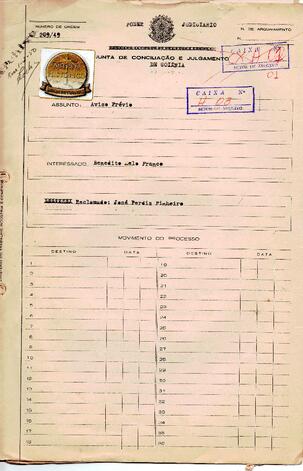 NUMERO DE ORDEM
209/49
PODER JUDICIARIO
N. DE ARQUIVAMENTO
JUNTA DE CONCILIAÇÃO E JULGAMENTO
DE GOIÂNIA
CAIXA
SETOR DE ARQUIVO
01
CAIXA Nº
SETOR DE ARQUIVO
ASSUNTO: Aviso Prévio
INTERESSADO: Benedito Melo Franco
Reclamado: José Perdiz Pinheiro
MOVIMENTO DO PROCESSO
DESTINO DATA DESTINO DATA
1 19
2 20
3 21
4 22
5 23
6 24
7 25
8 26
9 27
10 28
11 29
12 30
13 31
14 32
15 33
16 34
17 35
18 36